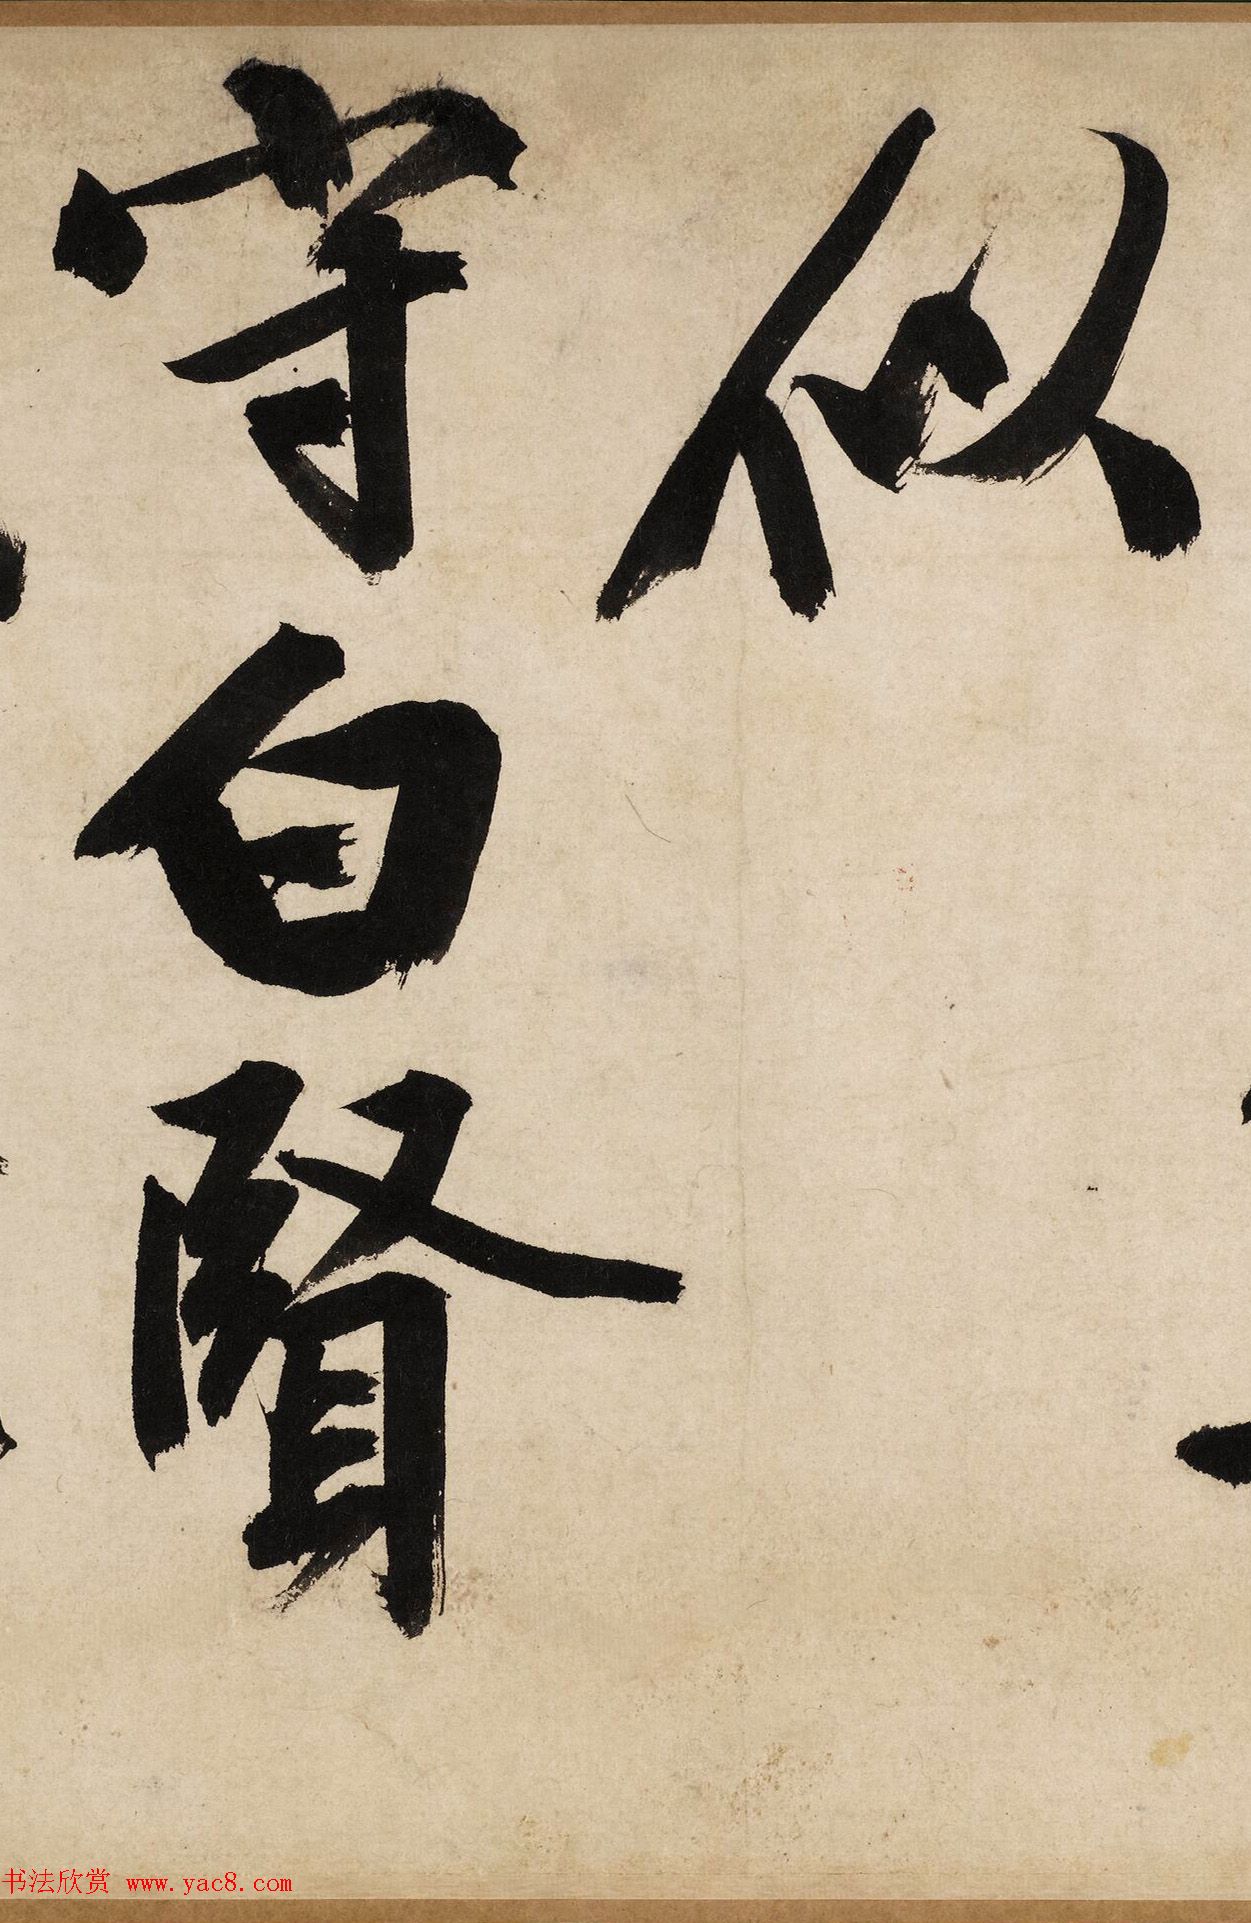 似
守白賢
书法欣赏 www.yac8.com